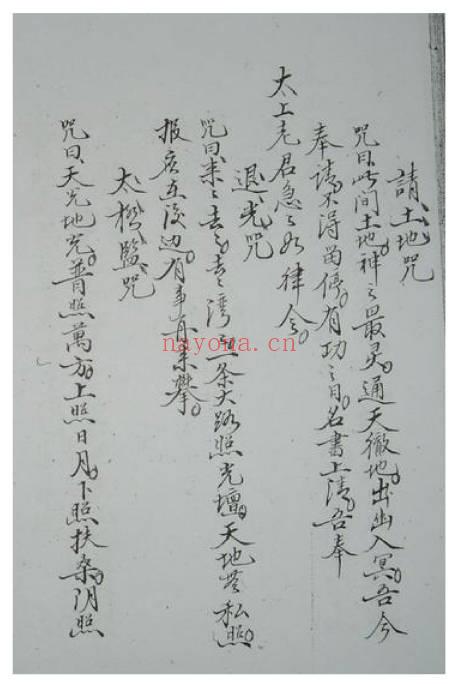 請土地咒
咒曰此間土地神之最灵通天徹地出幽入冥吾今
奉請不得留停有功之日名書上清吾奉
太上老君急〻如律令
退光咒
咒曰来〻去〻湾一条大路照光壇天地無私照
报应在後边有事再来攀
太極監咒
咒曰天光地光普照萬方上照日月下照扶桑阴照
nayona.cn